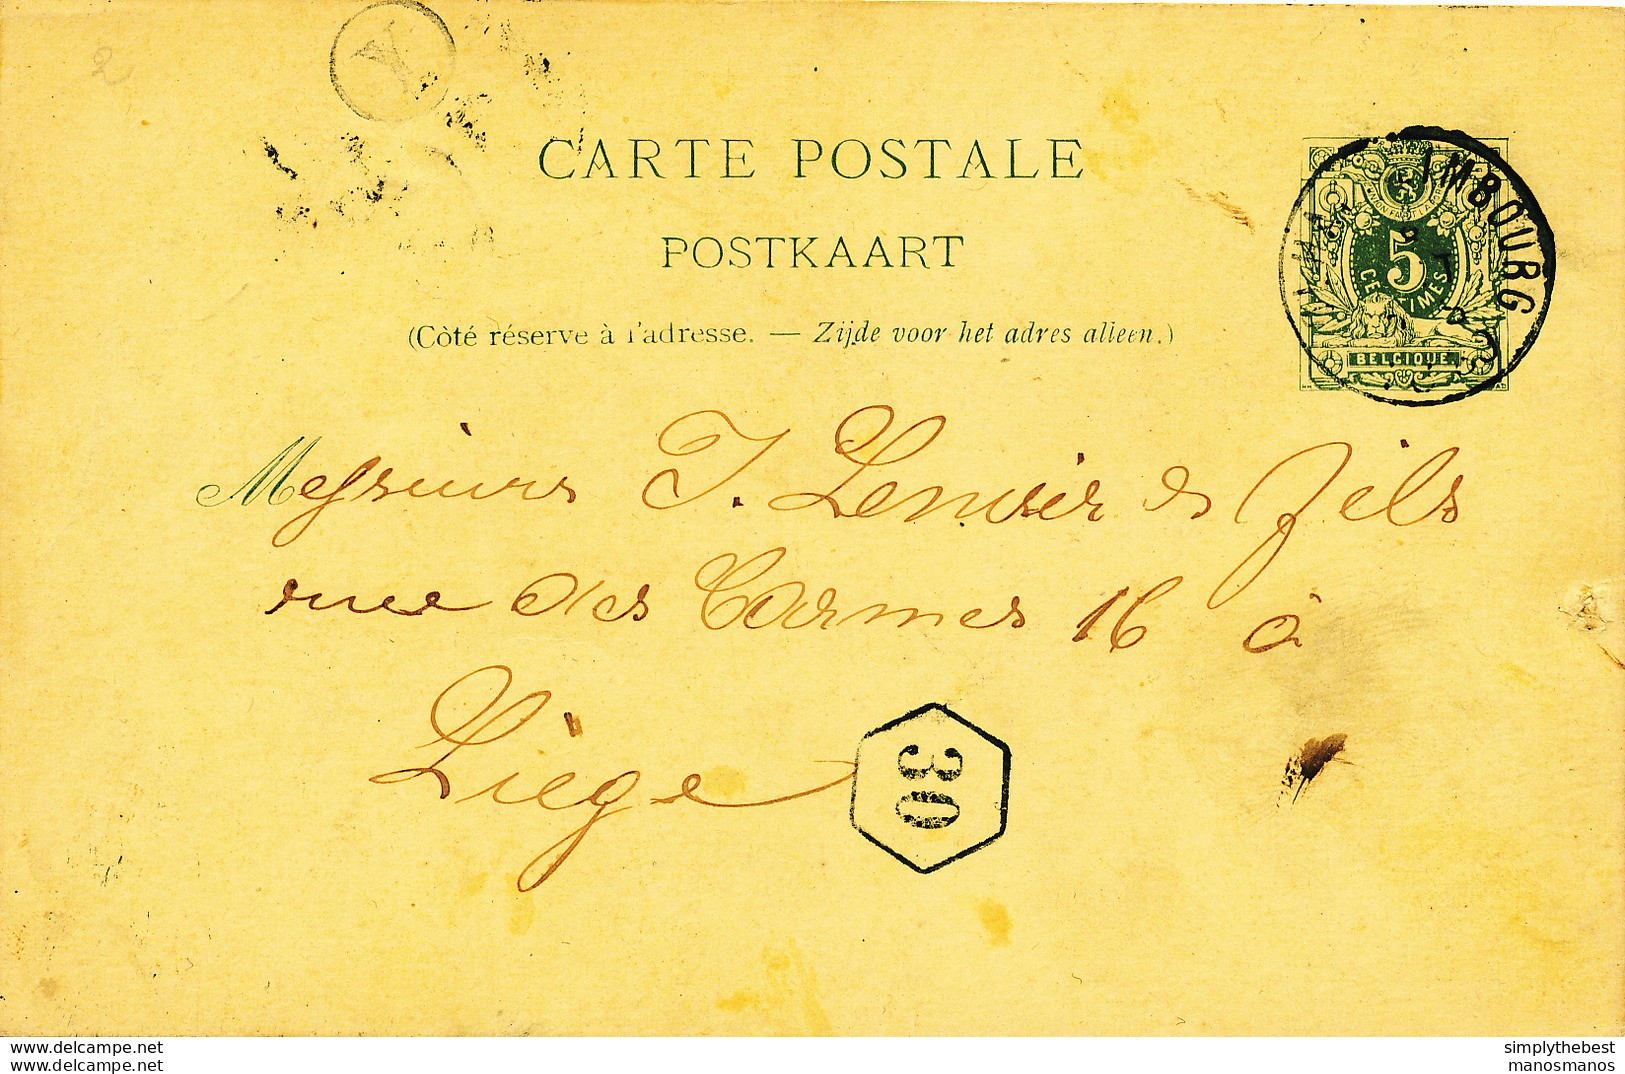 2
Y
CARTE POSTALE
POSTKAART
(Côté réservé à l'adresse. — Zijde voor het adres alleen.)
LIMBOURG
5
CENTIMES
BELGIQUE.
Messieurs J. Lenoir & fils
rue des Carmes 16 à
Liège
30
www.delcampe.net simplythebest
www.delcampe.net manosmanos